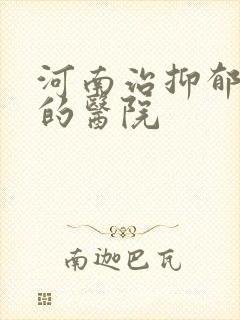 河南治抑郁
的醫院
南迦巴瓦